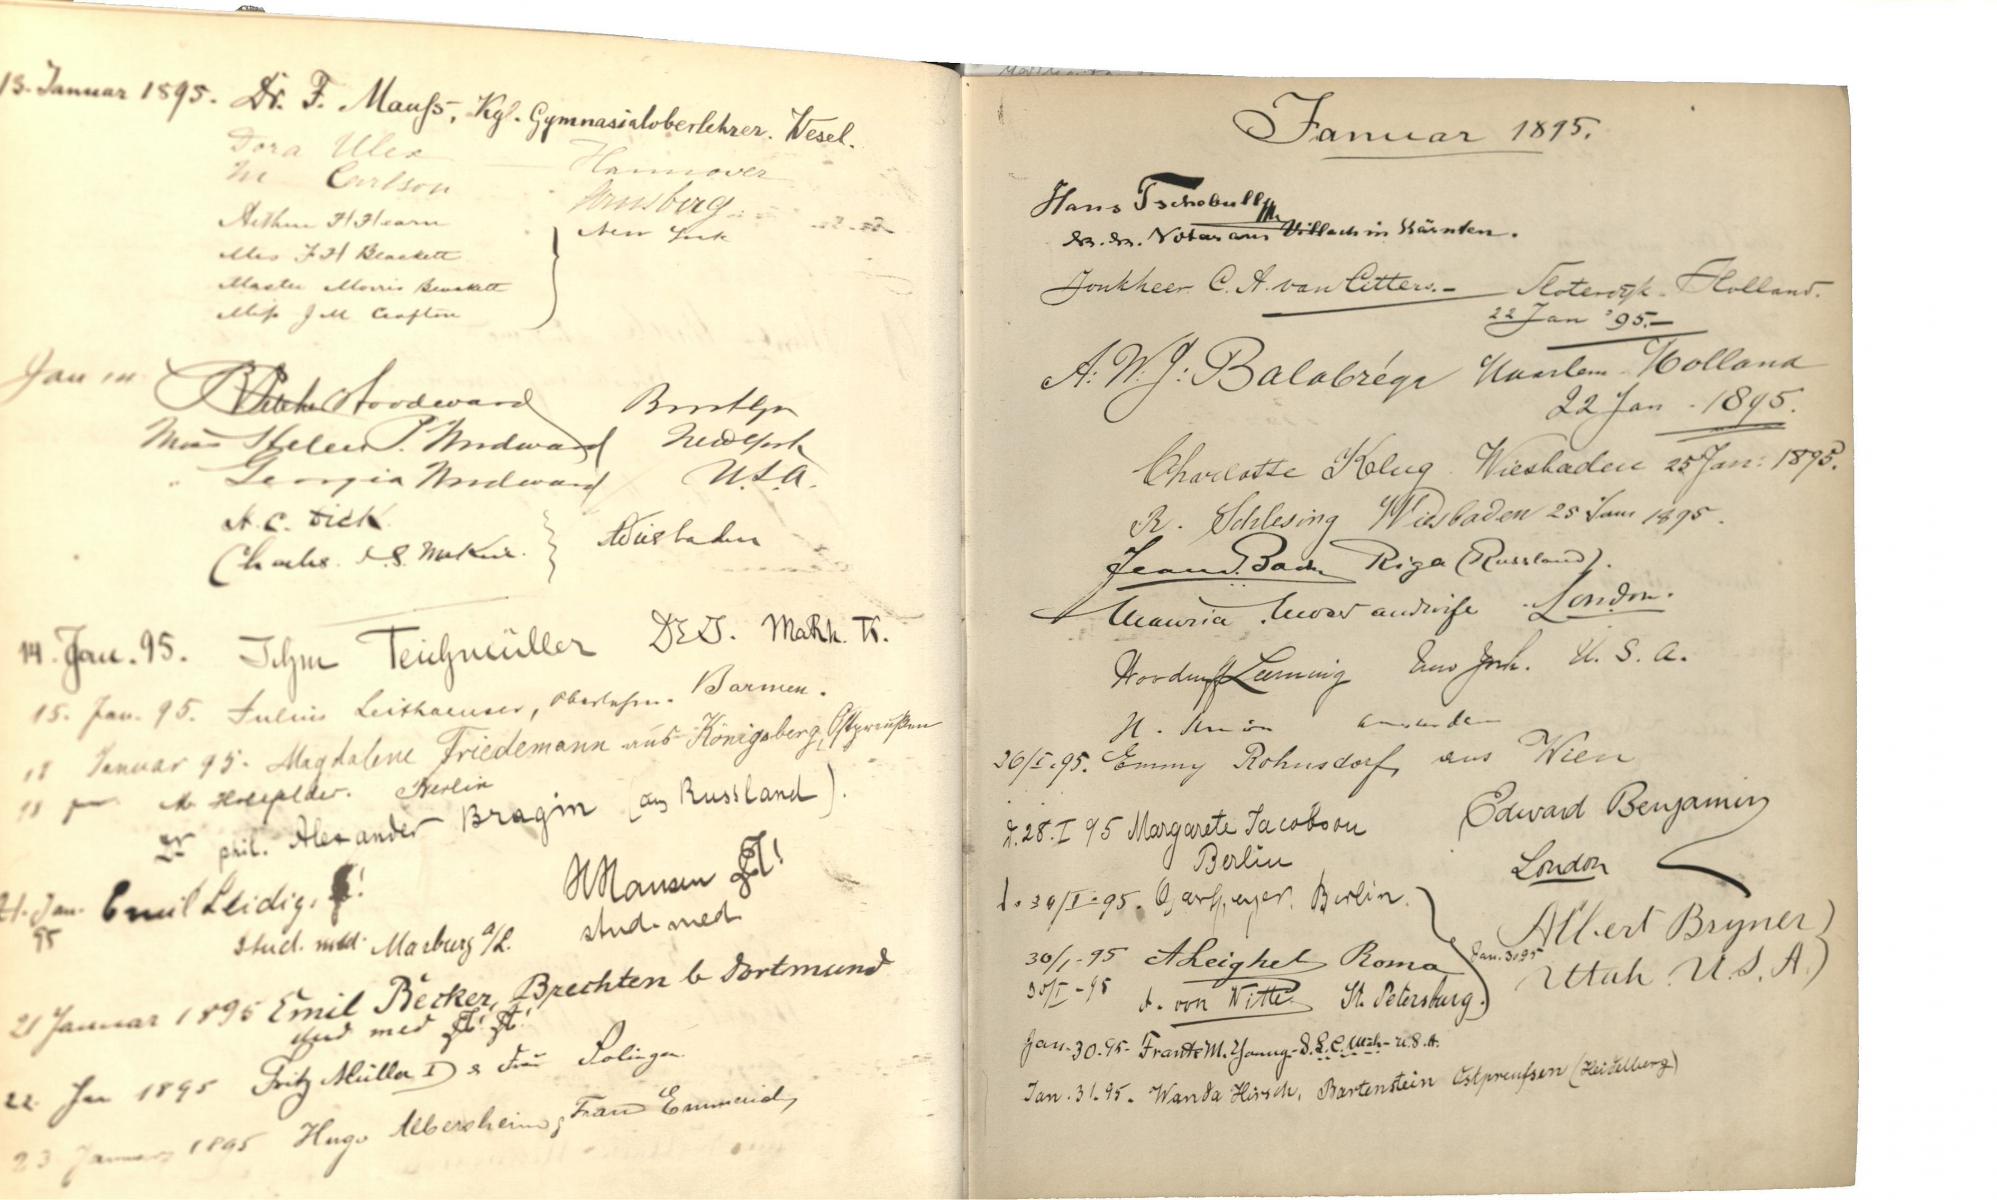 13. Januar 1895. Dr. F. Mauss, Kgl. Gymnasialoberlehrer. Wesel.
Dora Ulex Hannover
M Carlson Arnsberg
Arthur H Hearn New York
Mrs F H Brackett
Master Morris Brackett
Miss J M Crofton
Jan
Woodward Brooklyn
Miss Helen P. Woodward New York
" Georgia Woodward U.S.A.
A. C. Dick
Charles Wiesbaden
14. Jan. 95. Teichmüller
15. Jan. 95. Julius Leithaeuser, Oberlehr. Barmen.
18 Januar 95. Magdalene Friedemann aus Königsberg, Ostpreußen
18 Berlin
Dr phil. Alexander Bragin (aus Russland).
21. Jan. 95 Emil Leidig,
stud. med. Marburg a/L.
H Hansen
stud. med
21 Januar 1895 Emil Becker, Brechten b Dortmund
stud med
22 Jan 1895 Fritz Müller I & Frau Solingen
23 Januar 1895 Hugo Albersheim, Frau
Januar 1895.
Hans Tschebull
k. k. Notar aus Villach in Kärnten.
Jonkheer C. A. van Citters. Sloterdijk Holland.
22 Jan '95.
A. W. J. Balabréga Haarlem Holland
22 Jan 1895.
Charlotte Klug Wiesbaden 25 Jan: 1895.
R. Schlesing Wiesbaden 25 Jan 1895.
Riga (Russland).
and wife London.
Woodruff Leeming New York. U. S. A.
H. Amsterdam
26/I.95. Emmy Rohnsdorf, aus Wien
d. 28. I 95 Margarete Jacobson
Berlin
Edward Benjamin
London
d. 30/I. 95. Berlin.
30/I. 95 A Leighel Roma
30/I - 95 A. von Witte St. Petersburg.
Jan. 30 95
Albert Bryner
Utah U. S. A.
Jan. 30. 95- Frank M. Young- S. L. C. Utah - U. S. A.
Jan. 31. 95. Wanda Hirsch, Bartenstein Ostpreufsen (Heidelberg)